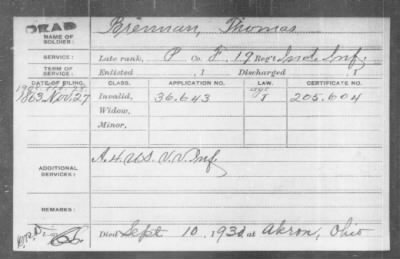 DEAD
NAME OF SOLDIER: Brennan, Thomas
SERVICE: Late rank, P Co. F. 19 Reg't Ind. Inf.
TERM OF SERVICE: Enlisted 1 Discharged 1
DATE OF FILING. CLASS. APPLICATION NO. LAW. CERTIFICATE NO.
1863 Nov. 27 Invalid, 36.643 205.604
Widow,
Minor,
ADDITIONAL SERVICES: A. 4. U.S. V.V. Inf.
REMARKS:
Died Sept 10, 1930 at Akron, Ohio